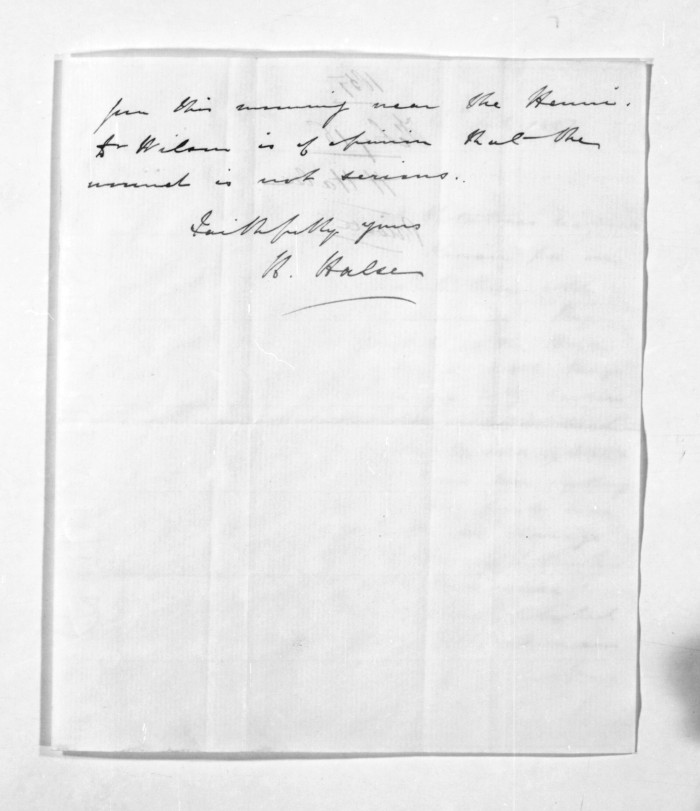 pen this morning near the Henui.
Dr Wilson is of opinion that the
wound is not serious.
Faithfully yours
H. Halse